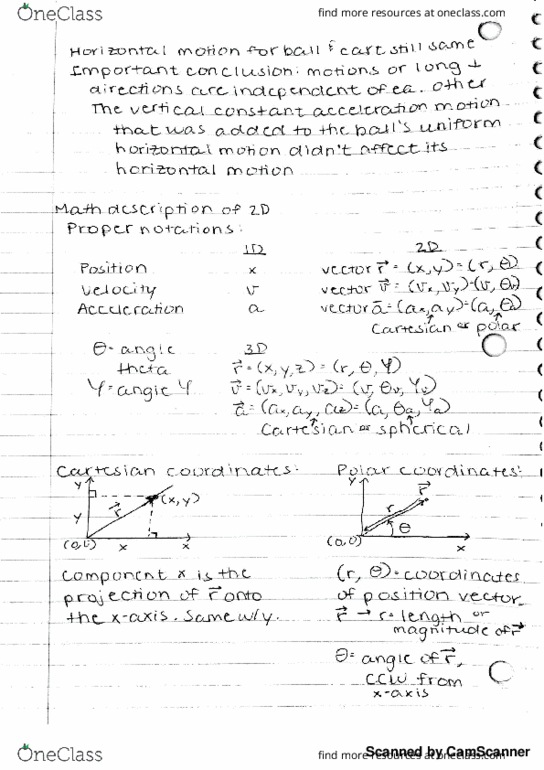 OneClass
find more resources at oneclass.com
Horizontal motion for ball & cart still same
Important conclusion: motions or long ⊥
directions are independent of ea. other
The vertical constant acceleration motion
that was added to the ball's uniform
horizontal motion didn't affect its
horizontal motion
Math description of 2D
Proper notations:
1D 2D
Position x vector r⃗ = (x,y) = (r, θ)
Velocity v vector v⃗ = (vx, vy) = (v, θv)
Acceleration a vector a⃗ = (ax, ay) = (a, θa)
Cartesian or polar
θ = angle theta
Ψ = angle Ψ
3D
r⃗ = (x, y, z) = (r, θ, Ψ)
v⃗ = (vx, vy, vz) = (v, θv, Ψv)
a⃗ = (ax, ay, az) = (a, θa, Ψa)
Cartesian or spherical
Cartesian coordinates:
y
(x,y)
r⃗
y
(0,0) x x
component x is the
projection of r⃗ onto
the x-axis. Same w/y.
Polar coordinates:
y
r⃗
r
θ
(0,0)
x
(r, θ) = coordinates
of position vector
r⃗ → r = length or
magnitude of r⃗
θ = angle of r⃗,
CCW from
x-axis
OneClass
find more resources at oneclass.com
Scanned by CamScanner